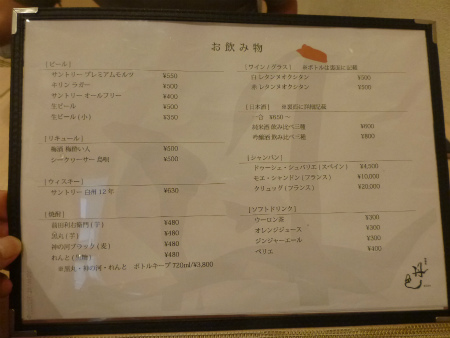 お飲み物
[ビール]
サントリー プレミアムモルツ ¥550
キリン ラガー ¥500
サントリー オールフリー ¥400
生ビール ¥500
生ビール (小) ¥350
[リキュール]
梅酒 ¥500
シークヮーサー ¥500
[ウィスキー]
サントリー 白州 12年 ¥630
[焼酎]
(芋) ¥480
黒丸 (芋) ¥480
神の河ブラック (麦) ¥480
れんと (黒糖) ¥480
※黒丸・神の河・れんと ボトルキープ 720ml/¥3,800
[ワイン / グラス] ※ボトルは裏面に記載
白 レタンヌオクシタン ¥500
赤 レタンヌオクシタン ¥500
[日本酒] ※裏面に詳細記載
一合 ¥650 ～
純米酒 飲み比べ三種 ¥800
吟醸酒 飲み比べ三種 ¥800
[シャンパン]
ドゥーシェ・シュバリエ (スペイン) ¥4,500
モエ・シャンドン (フランス) ¥10,000
クリュッグ (フランス) ¥20,000
[ソフトドリンク]
ウーロン茶 ¥300
オレンジジュース ¥300
ジンジャーエール ¥300
ペリエ ¥400